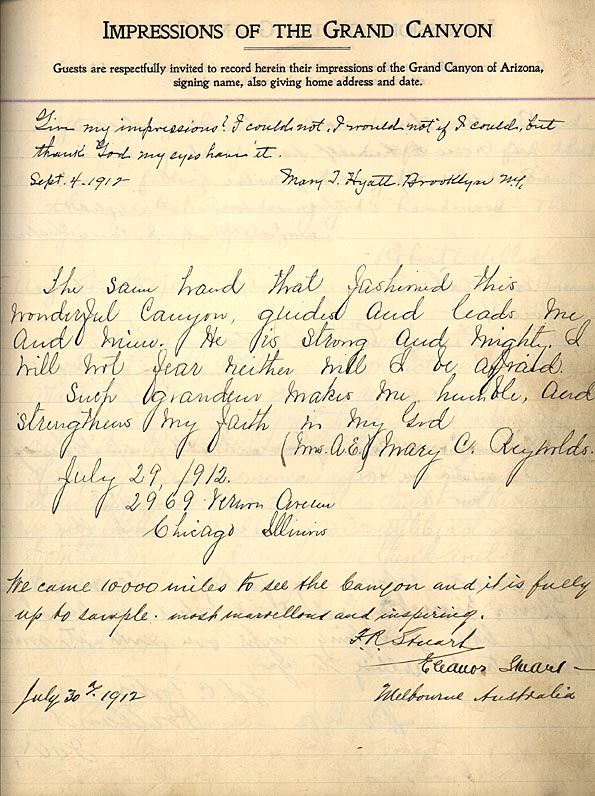 IMPRESSIONS OF THE GRAND CANYON
Guests are respectfully invited to record herein their impressions of the Grand Canyon of Arizona,
signing name, also giving home address and date.
Give my impressions? I could not. I would not if I could, but
thank God my eyes have it.
Sept. 4. 1912 Mary T. Hyatt. Brooklyn N.Y.
The same hand that fashioned this
wonderful Canyon, guides and leads me
and mine. He is strong and mighty. I
will not fear neither will I be afraid.
Such grandeur makes me humble, and
strengthens my faith in my God
(Mrs. A.E.) Mary C. Reynolds.
July 29, 1912.
2969 Vernon Avenue
Chicago Illinois
We came 10000 miles to see the Canyon and it is fully
up to sample. most marvellous and inspiring.
F.R. Stuart
Eleanor Stuart —
July 30th 1912 Melbourne Australia